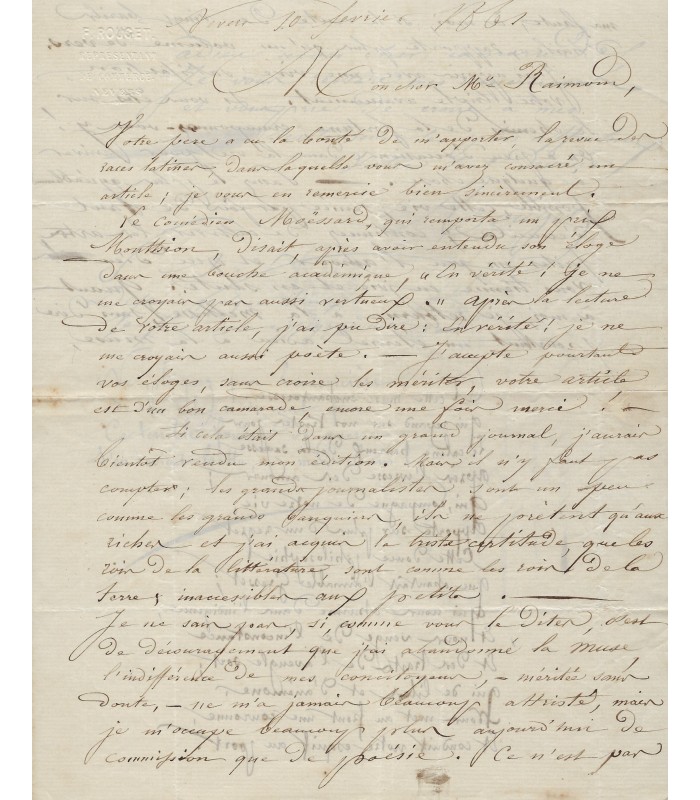 10 février
Mon cher Mr Raimond,
Votre père a eu la bonté de m'apporter, la revue des
races latines dans laquelle vous m'avez consacré un
article ; je vous en remercie bien sincèrement.
Le comédien Moëssard, qui remporta un prix
Monthyon, disait, après avoir entendu son éloge
dans une bouche académique, « En vérité ! je ne
me croyais pas aussi vertueux. » Après la lecture
de votre article, j'ai pu dire : En vérité ! je ne
me croyais aussi poète. — J'accepte pourtant
vos éloges, sans croire les mériter, votre article
est d'un bon camarade, encore une fois merci ! —
Si cela était dans un grand journal, j'aurais
bientôt vendu mon édition. Mais il n'y faut pas
compter ; les grands journalistes sont un peu
comme les grands banquiers, ils ne prêtent qu'aux
riches et j'ai acquis la triste certitude, que les
rois de la littérature sont comme les rois de la
terre, inaccessibles aux petits. —
Je ne sais pas, si, comme vous le dites, c'est
de découragement que j'ai abandonné la muse,
l'indifférence de mes concitoyens, — méritée sans
doute, — ne m'a jamais beaucoup attristé, mais
je m'occupe beaucoup plus aujourd'hui de
commission que de poésie. Ce n'est pas